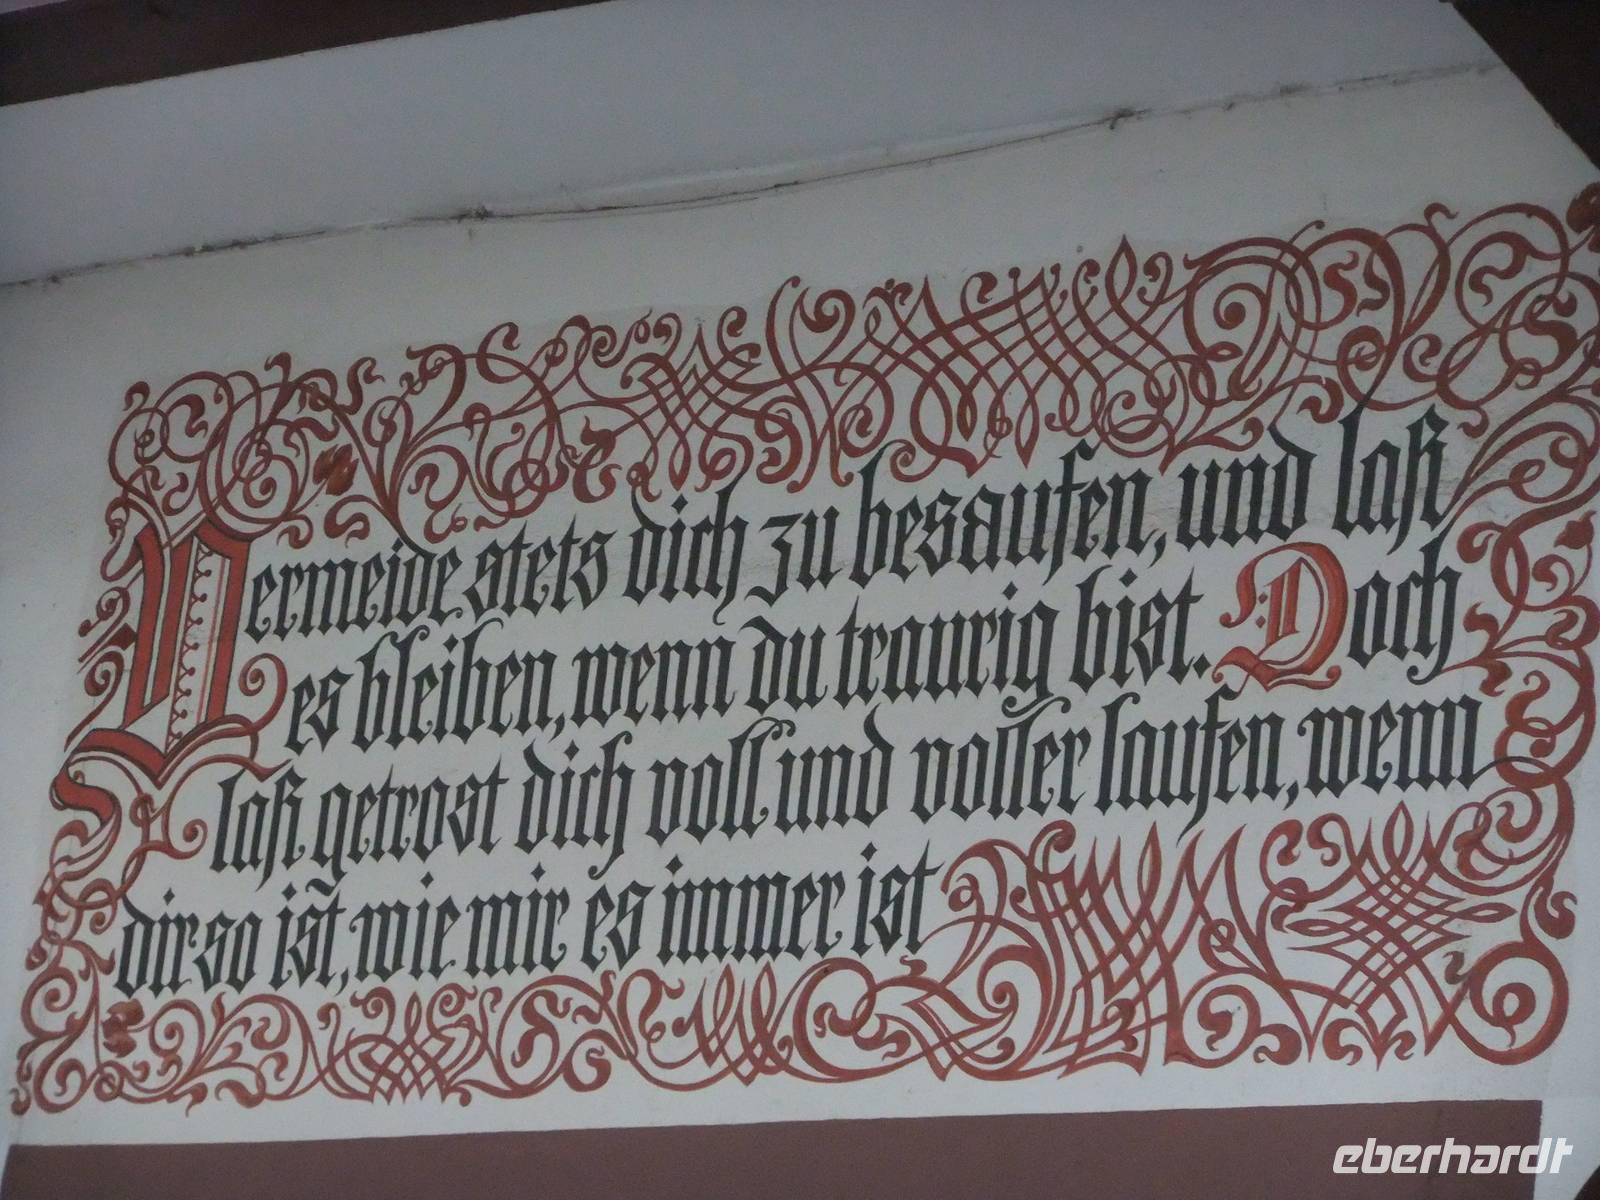 Vermeide stets dich zu besaufen, und laß
es bleiben, wenn du traurig bist. Doch
laß getrost dich voll und voller laufen, wenn
dir so ist, wie mir es immer ist
eberhardt